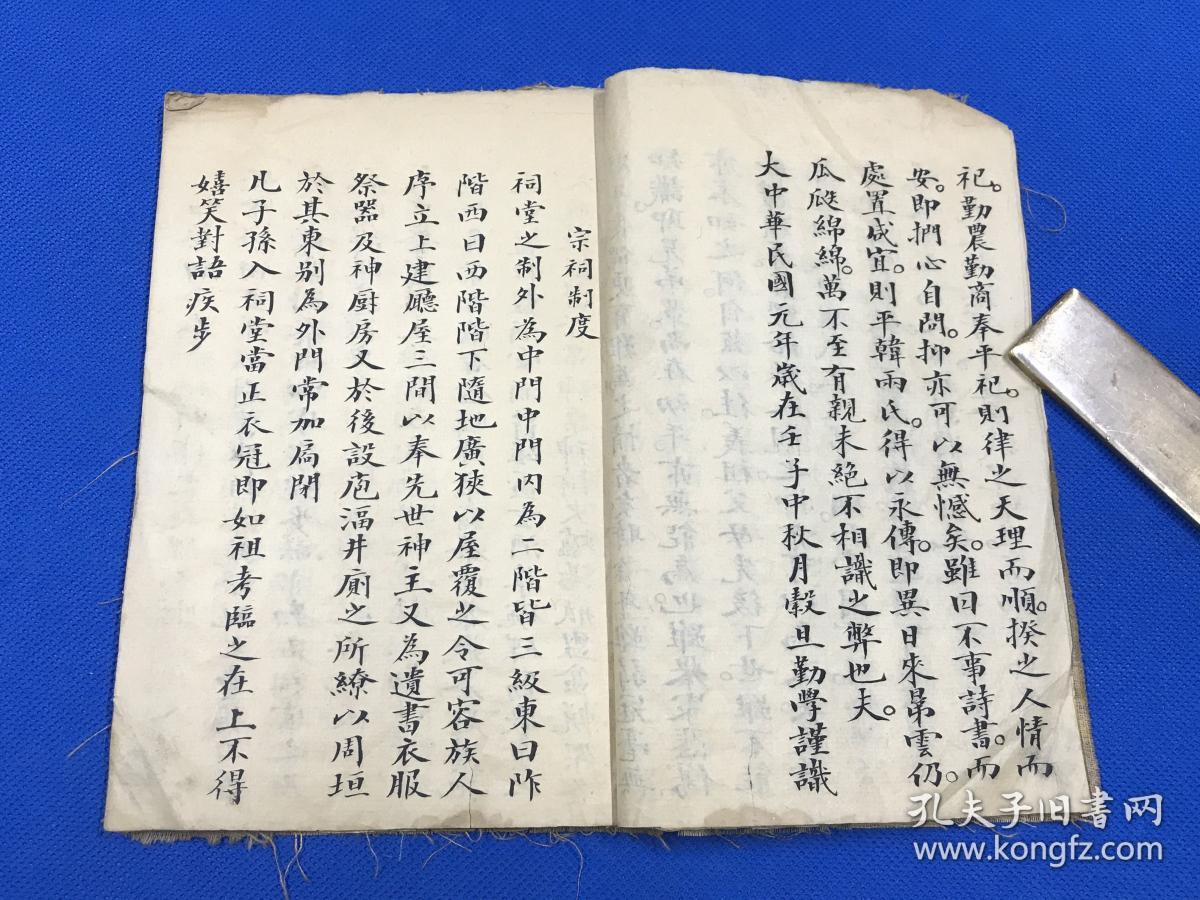 祀。勤農勤商奉平祀。則律之天理而順。揆之人情而
安。即捫心自問。抑亦可以無憾矣。雖曰不事詩書。而
處置咸宜。則平韓兩氏。得以永傳。即異日來昻雲仍。
瓜瓞綿綿。萬不至有親未絕不相識之弊也夫。
大中華民國元年歲在壬子中秋月穀旦勤學謹識
宗祠制度
祠堂之制外為中門中門内為二階皆三級東曰阼
階西曰西階階下隨地廣狹以屋覆之令可容族人
序立上建廳屋三間以奉先世神主又為遺書衣服
祭器及神厨房又於後設庖湢井廁之所繚以周垣
於其東别為外門常加扃閉
凡子孫入祠堂當正衣冠即如祖考臨之在上不得
嬉笑對語疾步
孔夫子旧书网
www.kongfz.com